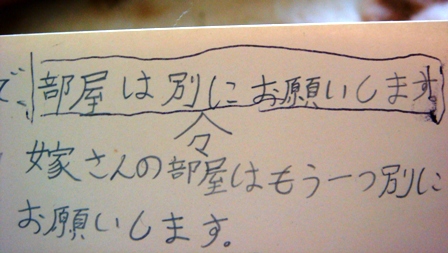 部屋は別にお願いします
令
嫁さんの部屋はもう一つ別に
お願いします。